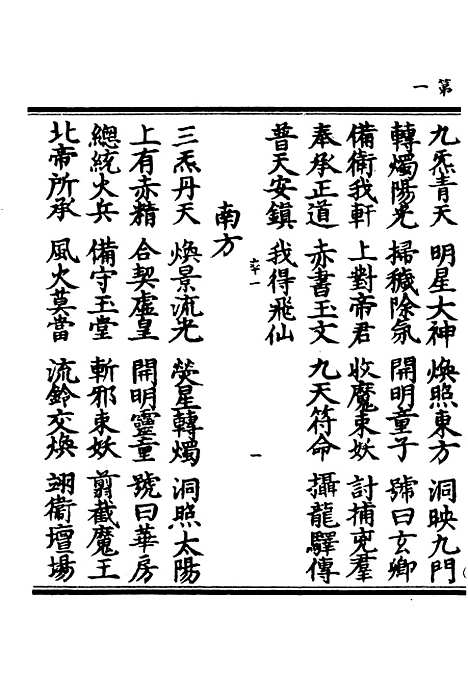 第一
九炁青天 明星大神 煥照東方 洞映九門
轉燭陽光 掃穢除氛 開明童子 號曰玄卿
備衛我軒 上對帝君 收魔束妖 討捕兇羣
奉承正道 赤書玉文 九天符命 攝龍驛傳
普天安鎮 我得飛仙
南方
三炁丹天 煥景流光 熒星轉燭 洞照太陽
上有赤精 合契虛皇 開明靈童 號曰華房
總統火兵 備守玉堂 斬邪束妖 剪截魔王
北帝所承 風火莫當 流鈴交煥 翊衞壇場